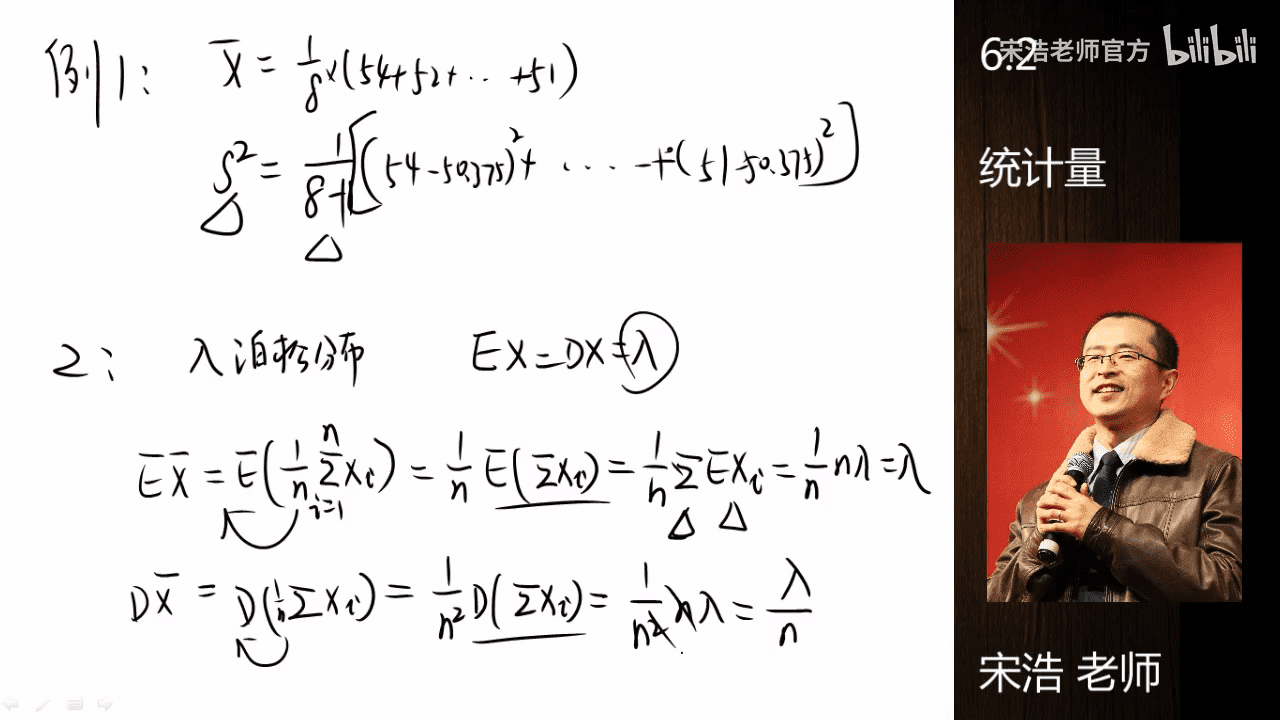 例1: X̄ = 1/8 ×(54+52+… +51)
S² = 1/(8-1) [(54-50.375)²+ …… +(51-50.375)²]
2: λ泊松分布 EX=DX=λ
EX̄ = E(1/n Σ_{i=1}^{n} Xi) = 1/n E(ΣXi) = 1/n Σ EXi = 1/n nλ = λ
DX̄ = D(1/n Σ Xi) = 1/n² D(ΣXi) = 1/n² nλ = λ/n
宋浩老师官方 bilibili
6.2
统计量
宋浩 老师